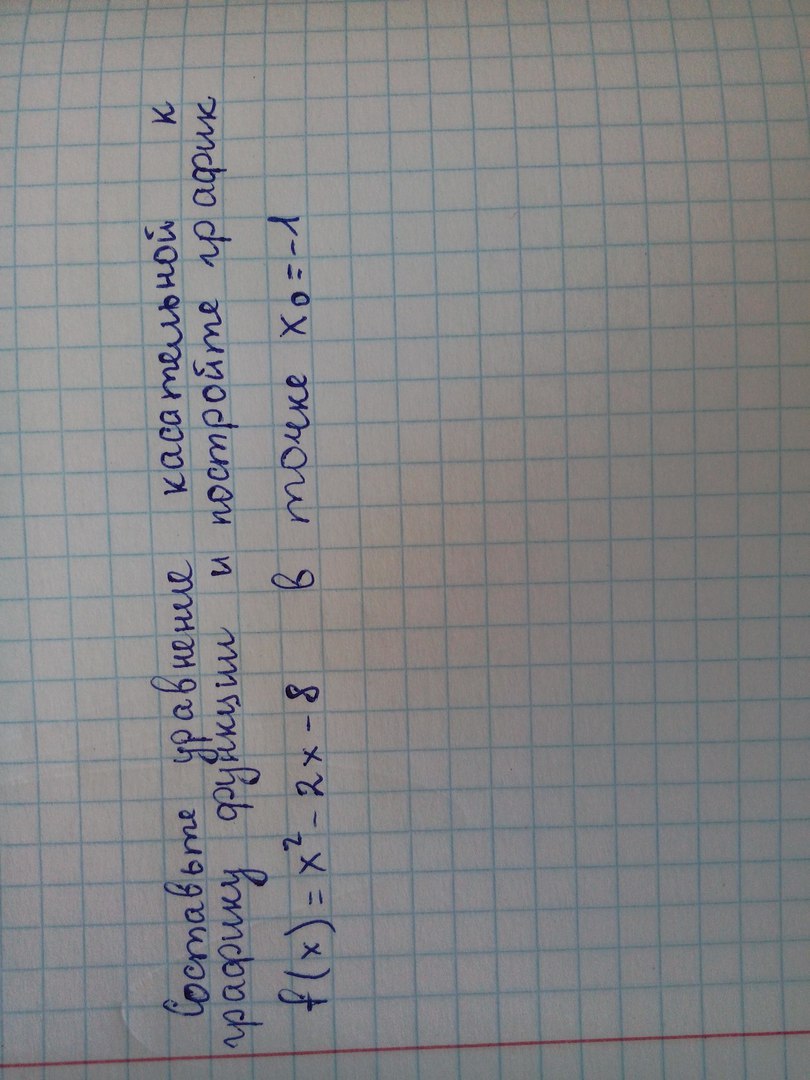 Составьте уравнение касательной к
графику функции и постройте график
f(x) = x² - 2x - 8 в точке x₀ = -1